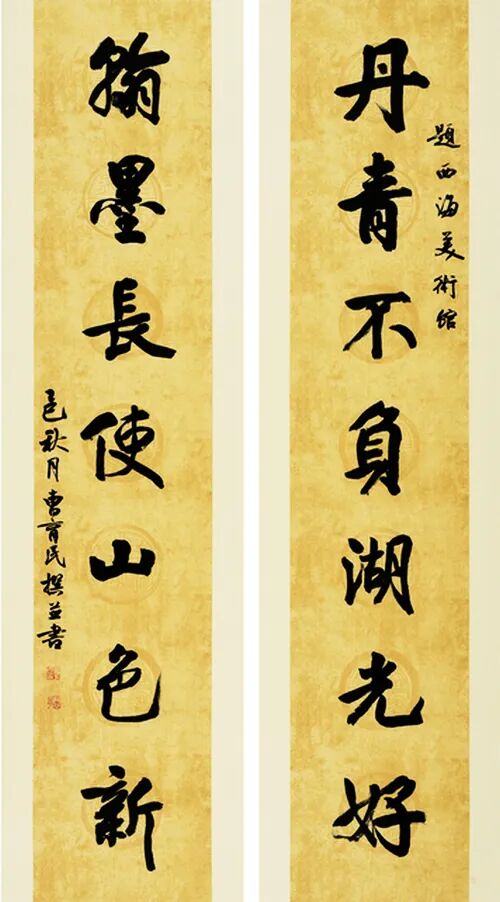 題西海美術館
丹青不負湖光好
翰墨長使山色新
秋月曹育民撰並書